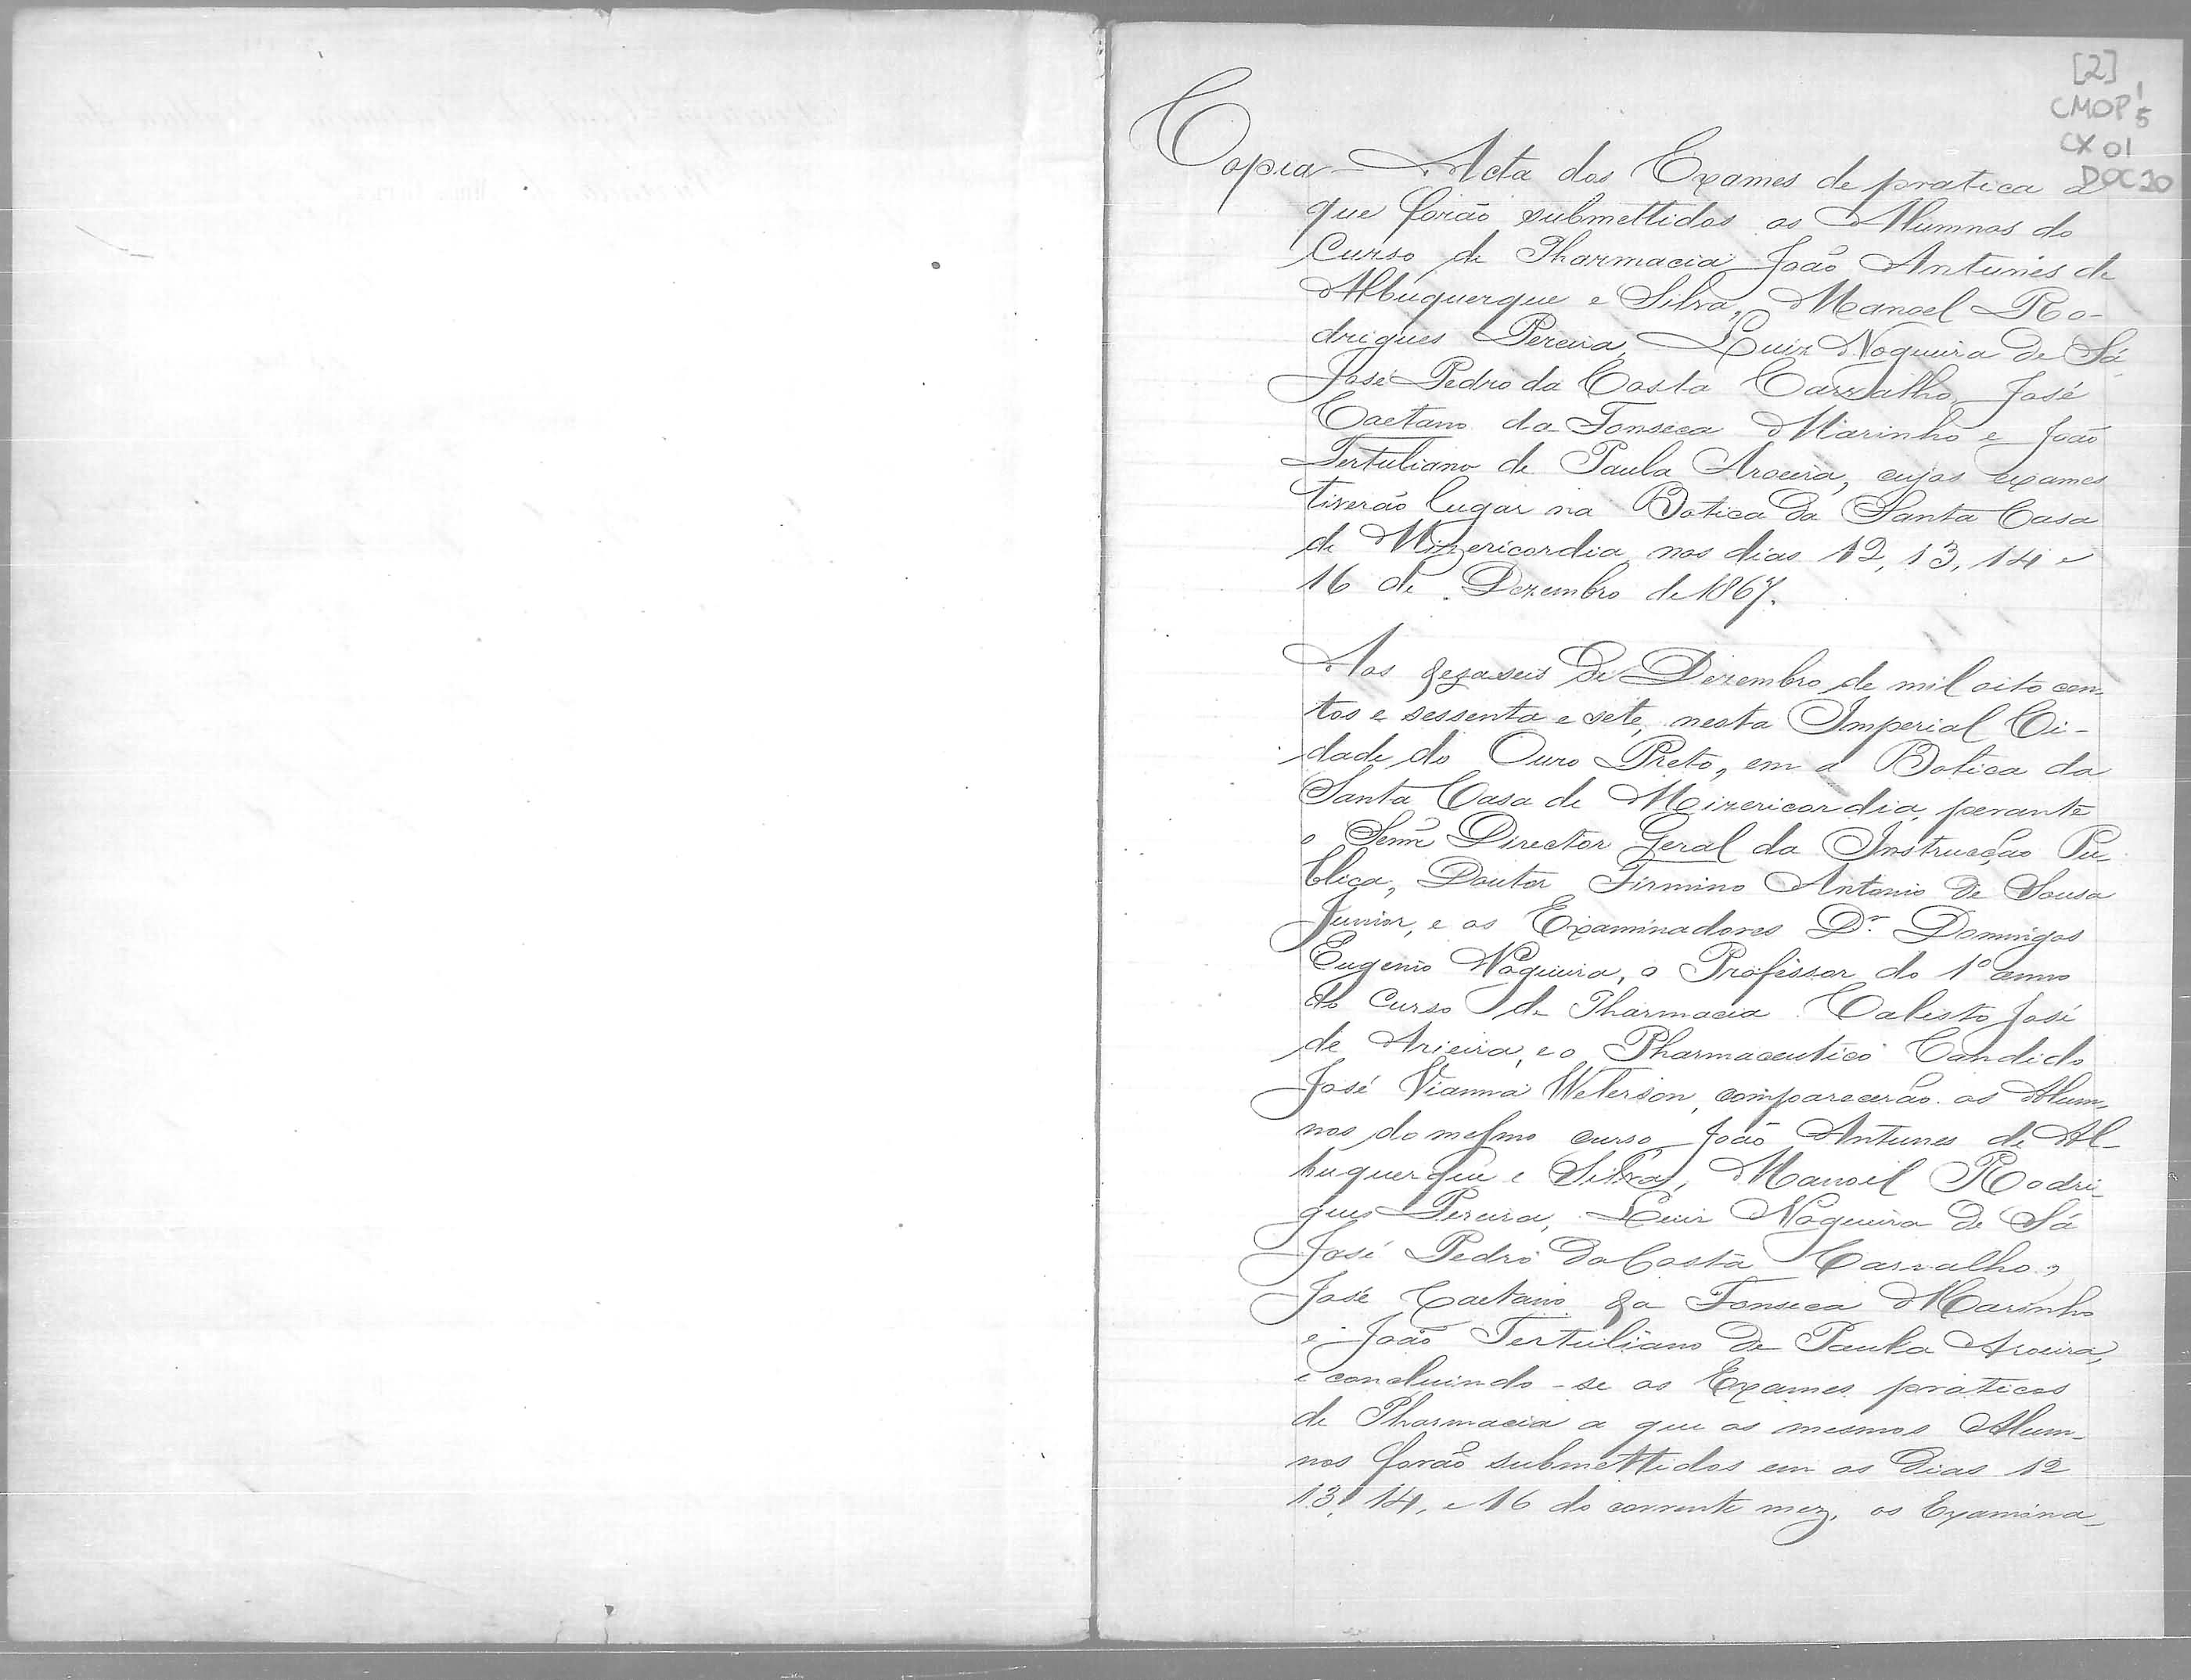 [2]
CMOP 1
5
CX 01
DOC 20
Copia – Acta dos Exames de pratica a
que forão submettidos os Alumnos do
Curso de Pharmacia João Antunes de
Albuquerque e Silva, Manoel Ro-
drigues Pereira, Luiz Nogueira de Sá
José Pedro da Costa Carvalho, José
Caetano da Fonseca Marinho e João
Tertuliano de Paula Aroeira, cujos exames
tiverão lugar na Botica da Santa Casa
de Mizericordia nos dias 12, 13, 14 e
16 de Dezembro de 1867.
Aos dezaseis de Dezembro de mil oito cen-
tos e sessenta e sete, nesta Imperial Ci-
dade do Ouro Preto, em a Botica da
Santa Casa de Mizericordia, perante
o Senr Director Geral da Instrucção Pu-
blica, Doutor Firmino Antonio de Sousa
Junior, e os Examinadores Dr. Domingos
Eugenio Nogueira, o Professor do 1º anno
do Curso de Pharmacia Calisto José
de Arieira, e o Pharmaceutico Candido
José Vianna Weterson, comparecerão os Alum-
nos do mesmo curso João Antunes de Al-
buquerque e Silva, Manoel Rodri-
gues Pereira, Luiz Nogueira de Sá
José Pedro da Costa Carvalho,
José Caetano da Fonseca Marinho
e João Tertuliano de Paula Aroeira,
e concluindo-se os Exames praticos
de Pharmacia a que os mesmos Alum-
nos forão submettidos em os dias 12
13, 14, e 16 do corrente mez, os Examina-